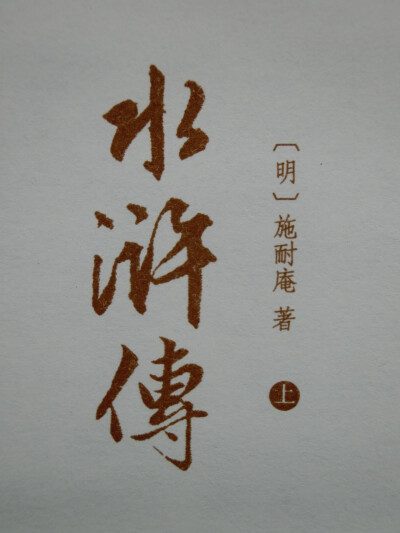 水滸傳
〔明〕施耐庵 著
上